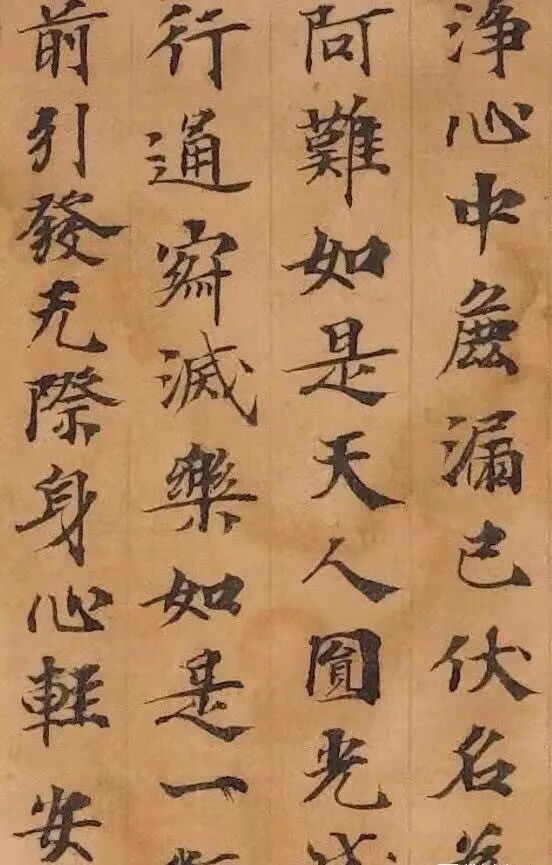 浄心中麁漏已伏名
阿難如是天人圓光成
行通寂滅樂如是一
前引發无際身心輕安